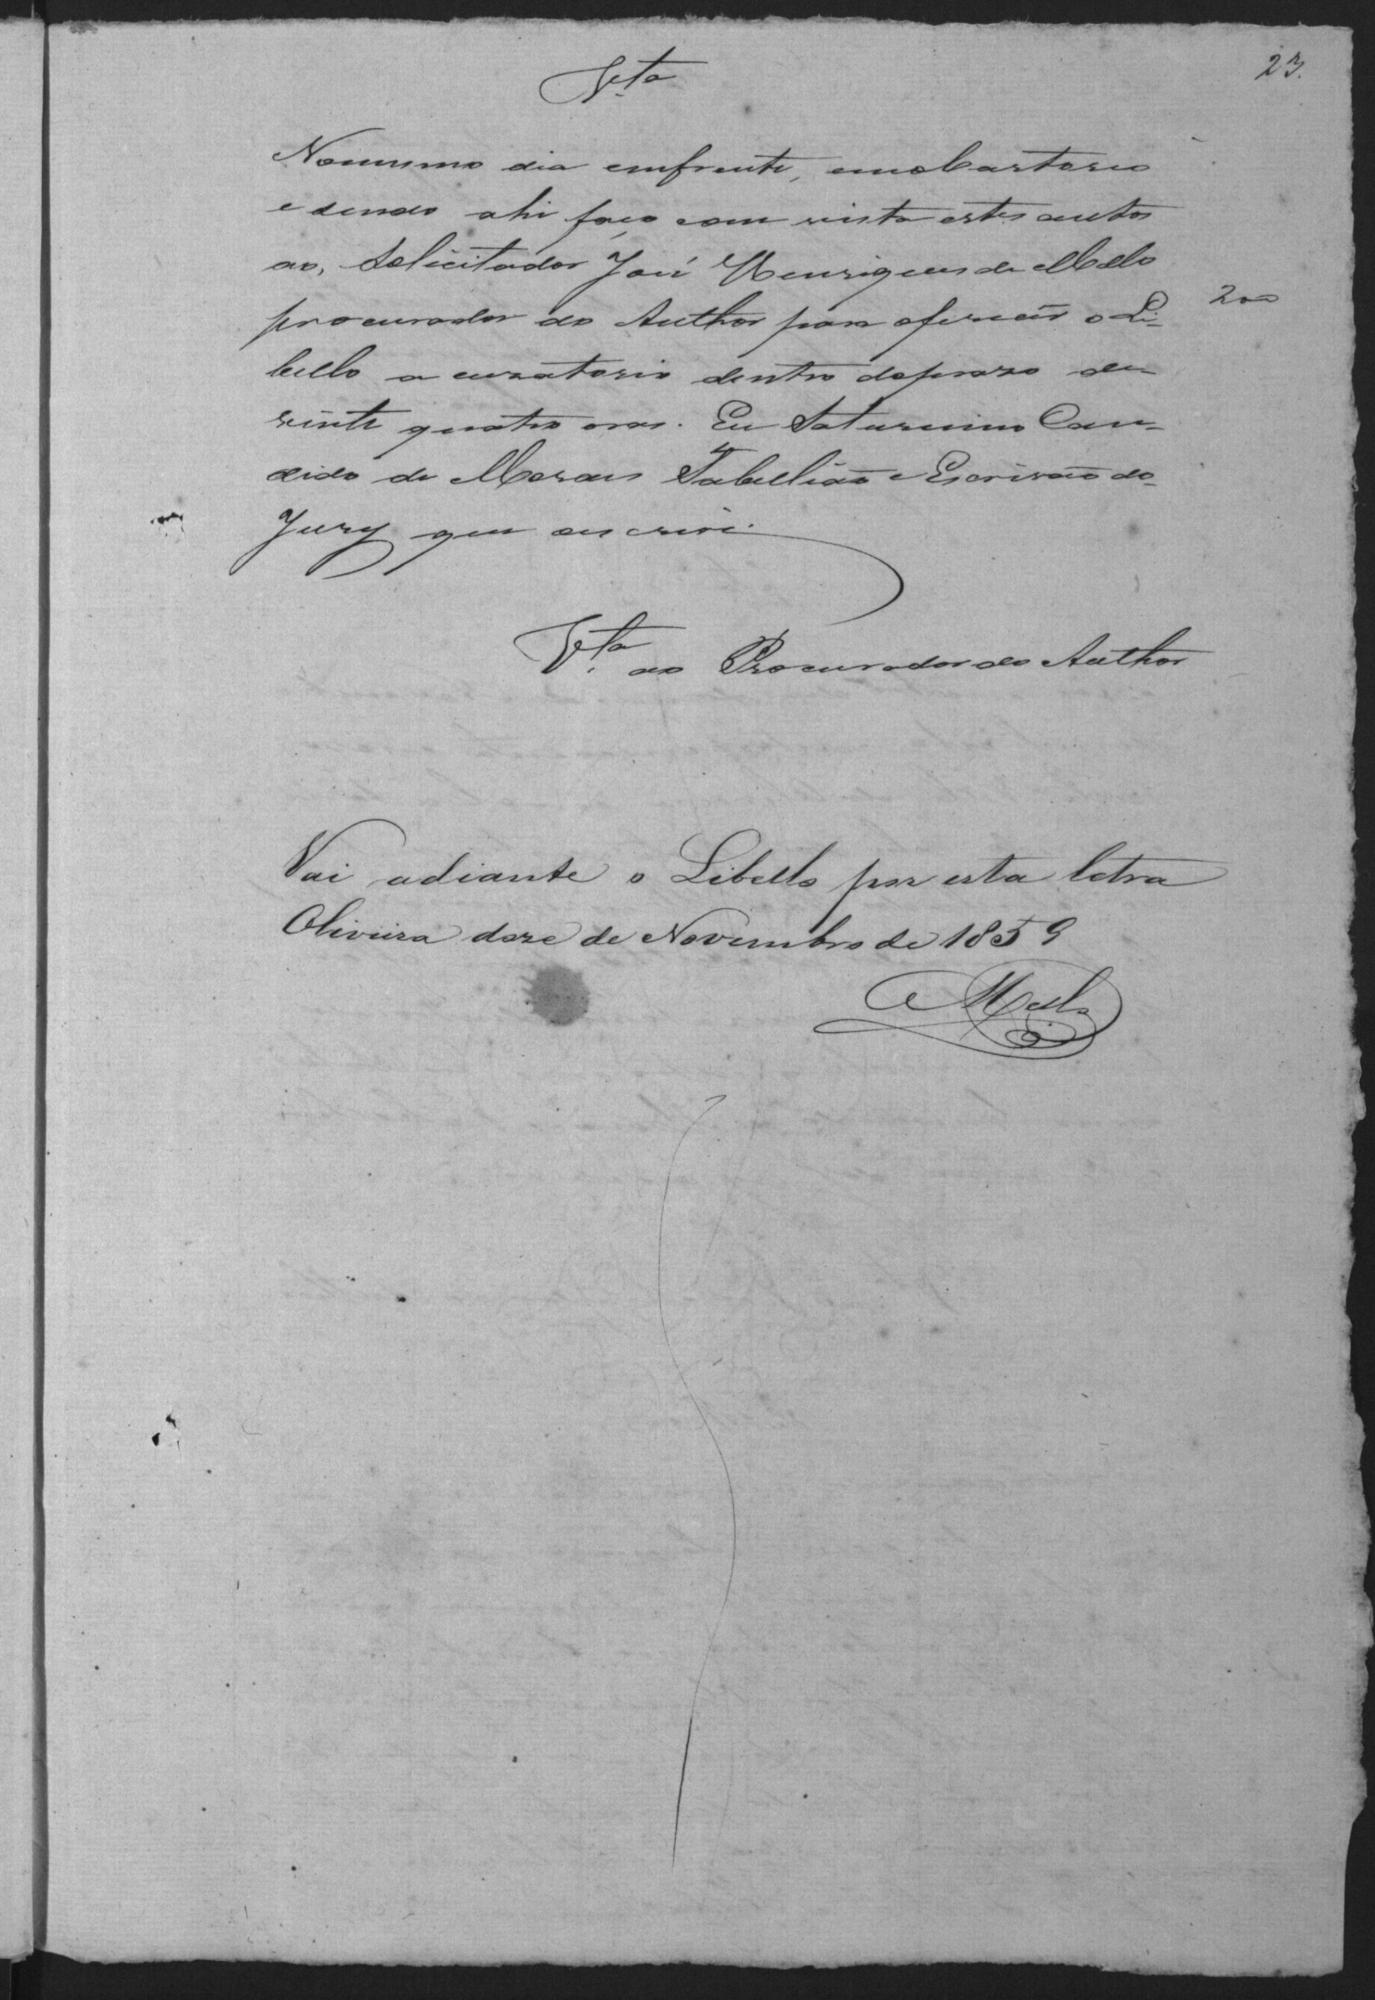 23.
V.ta
Nomesmo dia emfrente, emeoCartorio
e sendo ahi faço com vista estes autos
ao, Solicitador José Henriques de Mello
procurador do Author para oferecer o Li- 200
bello a cuzatorio dentro doprazo de
vinte quatro oras. Eu Saturnino Can-
dido de Moraes Tabellião e Escrivão do
Jury que escrevi.
V.ta ao Procurador do Author
Vai adiante o Libello por esta letra
Oliveira doze de Novembro de 1859
Mello